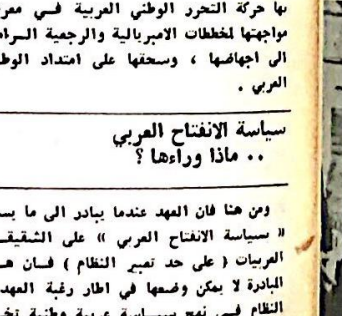 بها حركة التحرر الوطني العربية فسي
مواجهتها لمخططات الامبريالية والرجعية
الى اجهاضها ، وسحقها على امتداد
العربي .
سياسة الانفتاح العربي
.. ماذا وراءها ؟
ومن هنا فان العهد عندما يبادر الى ما
« بسياسة الانفتاح العربي » على
العربيات ( على حد تعبير النظام ) فسان
المبادرة لا يمكن وضعها في اطار رغبة العهد
النظام فسي نهج سياسة عربية وطنية